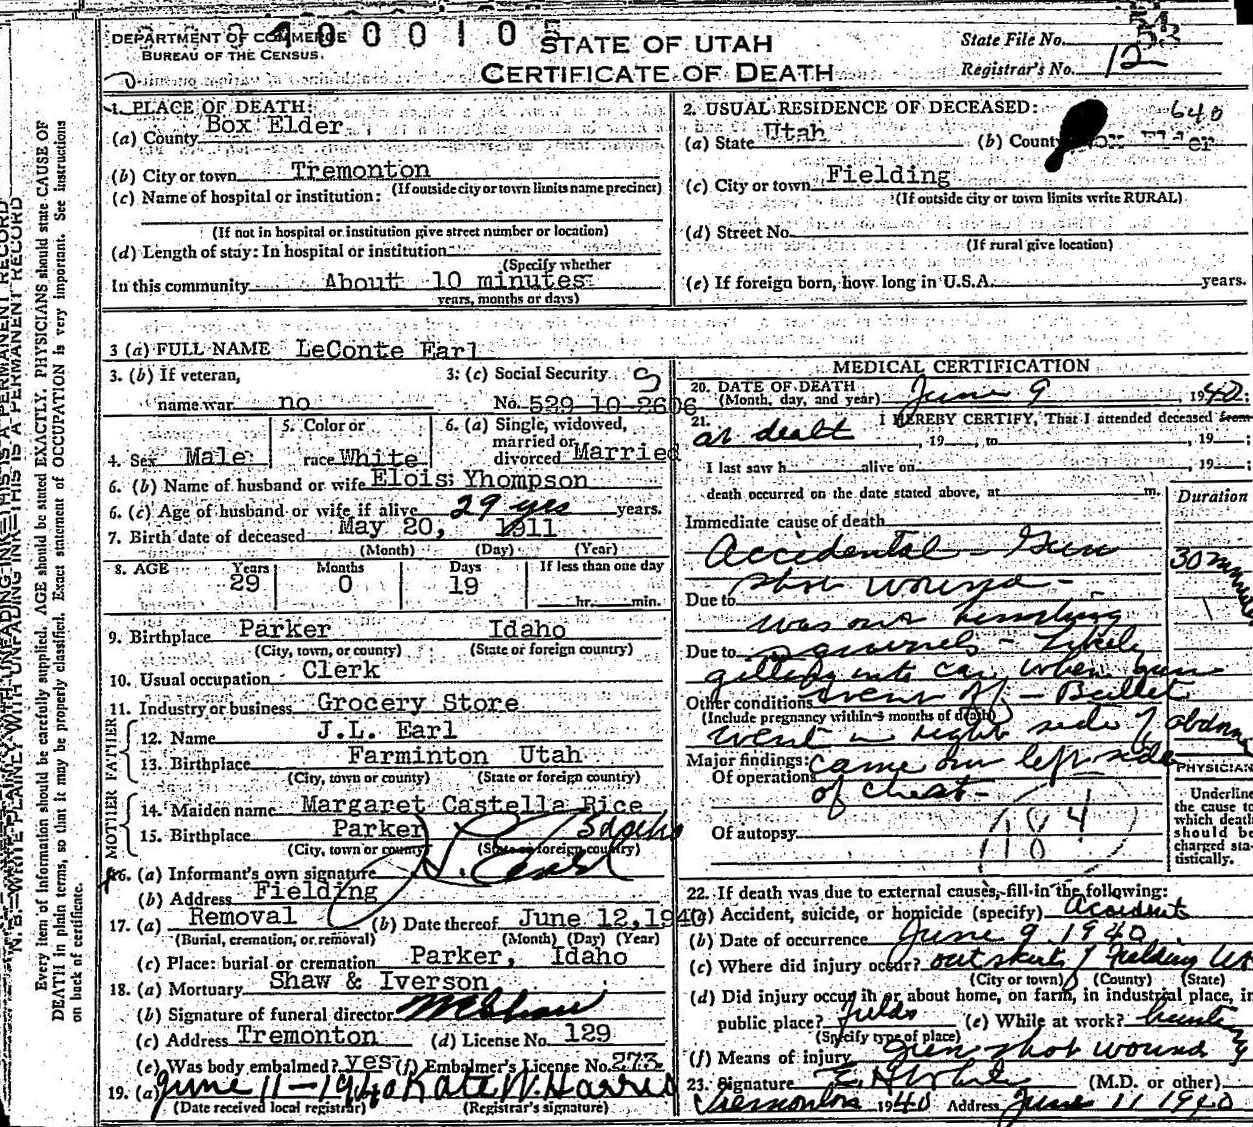 DEPARTMENT OF COMMERCE
BUREAU OF THE CENSUS
400010
STATE OF UTAH
CERTIFICATE OF DEATH
State File No. 53
Registrar's No. 12
N. B.—WRITE PLAINLY WITH UNFADING INK—THIS IS A PERMANENT RECORD
Every item of information should be carefully supplied. AGE should be stated EXACTLY. PHYSICIANS should state CAUSE OF
DEATH in plain terms, so that it may be properly classified. Exact statement of OCCUPATION is very important. See instructions
on back of certificate.
1. PLACE OF DEATH:
(a) County Box Elder
(b) City or town Tremonton
(If outside city or town limits name precinct)
(c) Name of hospital or institution:
(If not in hospital or institution give street number or location)
(d) Length of stay: In hospital or institution
(Specify whether
In this community About 10 minutes
years, months or days)
2. USUAL RESIDENCE OF DECEASED:
640
(a) State Utah (b) County Box Elder
(c) City or town Fielding
(If outside city or town limits write RURAL)
(d) Street No.
(If rural give location)
(e) If foreign born, how long in U.S.A. years.
3 (a) FULL NAME LeConte Earl
3. (b) If veteran, 3: (c) Social Security
name war no No. 529 10 2606
4. Sex Male
5. Color or
race White
6. (a) Single, widowed,
married or
divorced Married
6. (b) Name of husband or wife Elois Yhompson
6. (c) Age of husband or wife if alive 29 yrs years.
7. Birth date of deceased May 20, 1911
(Month) (Day) (Year)
8. AGE Years Months Days If less than one day
29 0 19 hr. min.
9. Birthplace Parker Idaho
(City, town, or county) (State or foreign country)
10. Usual occupation Clerk
11. Industry or business Grocery Store
FATHER
12. Name J.L. Earl
13. Birthplace Farminton Utah
(City, town or county) (State or foreign country)
MOTHER
14. Maiden name Margaret Castella Rice
15. Birthplace Parker Idaho
(City, town or county) (State or foreign country)
16. (a) Informant's own signature Earl
(b) Address Fielding
17. (a) Removal (b) Date thereof June 12, 1940
(Burial, cremation, or removal) (Month) (Day) (Year)
(c) Place: burial or cremation Parker, Idaho
18. (a) Mortuary Shaw & Iverson
(b) Signature of funeral director
(c) Address Tremonton (d) License No. 129
(e) Was body embalmed? yes (f) Embalmer's License No. 273
19. (a) June 11-1940 Kate W. Harris
(Date received local registrar) (Registrar's signature)
MEDICAL CERTIFICATION
20. DATE OF DEATH
(Month, day, and year) June 9, 1940;
21. I HEREBY CERTIFY, That I attended deceased from
, 19 , to , 19 ;
I last saw h alive on , 19 ;
death occurred on the date stated above, at m.
Duration
Immediate cause of death
Accidental - Gun
30 minutes
shot wound -
Due to
was out hunting
Due to squirrels - Likely
getting into car when gun
Other conditions went off - Bullet
(Include pregnancy within 3 months of death)
went in right side of abdomen
Major findings: came out left side
Of operations of chest -
Of autopsy
184
PHYSICIAN
Underline
the cause to
which death
should be
charged sta-
tistically.
22. If death was due to external causes, fill in the following:
(a) Accident, suicide, or homicide (specify) Accident
(b) Date of occurrence June 9 1940
(c) Where did injury occur? outskirts of Fielding Ut
(City or town) (County) (State)
(d) Did injury occur in or about home, on farm, in industrial place, in
public place? fields (e) While at work? hunting
(Specify type of place)
(f) Means of injury Gun shot wound
23. Signature (M.D. or other)
Tremonton 1940 Address June 11 1940